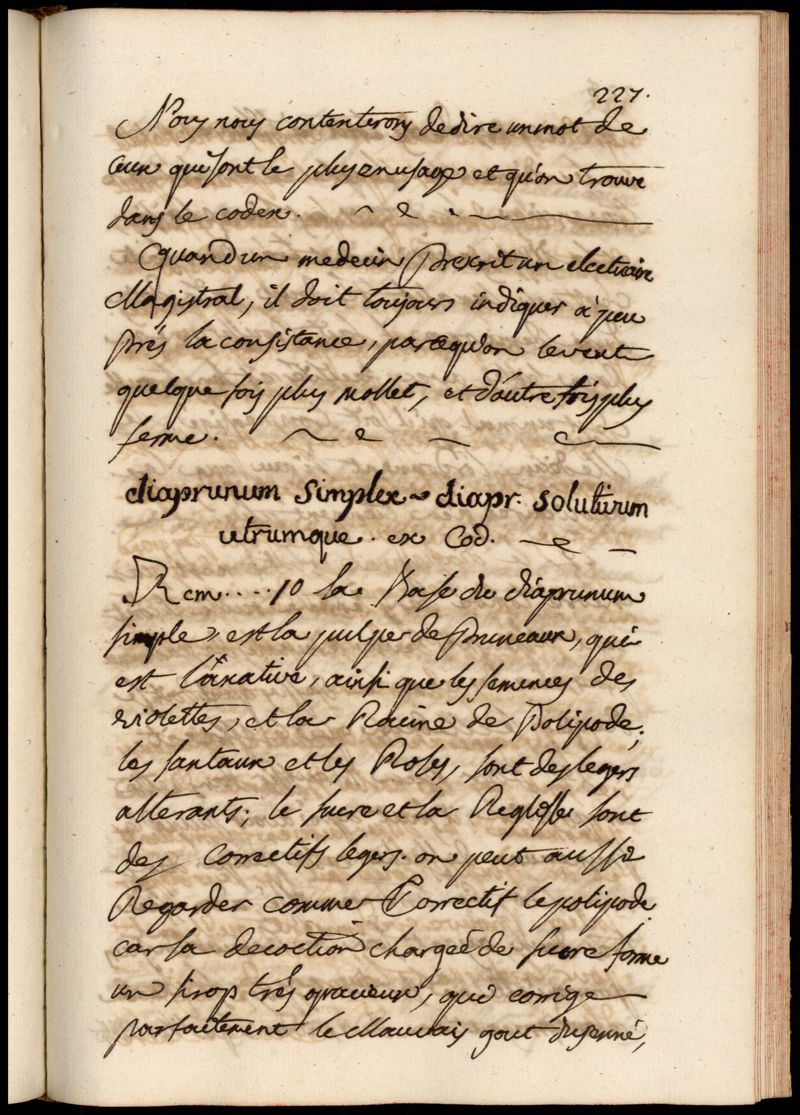 227.
Nous nous contenterons de dire un mot de
ceux qui sont le plus en usage et qu'on trouve
dans le codex.
Quand un medecin prexrit un electuaire
Magistral, il doit toujours indiquer à peu
prés la consistance, parcequ'on le veut
quelque fois plus mollet, et d'autre fois plus
ferme.
diaprunum simplex ~ diapr. solutivum
utrumque. ex Cod.
Rem....10 la Base du diaprunum
simple, est la pulpe de Pruneaux, qui
est laxative, ainsi que les semences des
violettes, et la Racine de Polipode;
les santaux et les Roses, sont des legers
alterants; le sucre et la Reglisse sont
des correctifs legers. on peut aussi
Regarder comme Correctif le polipode
car sa decoction chargeé de sucre forme
un sirop trés gracieux, qui corrige
parfaitement le Mauvais gout du senné,